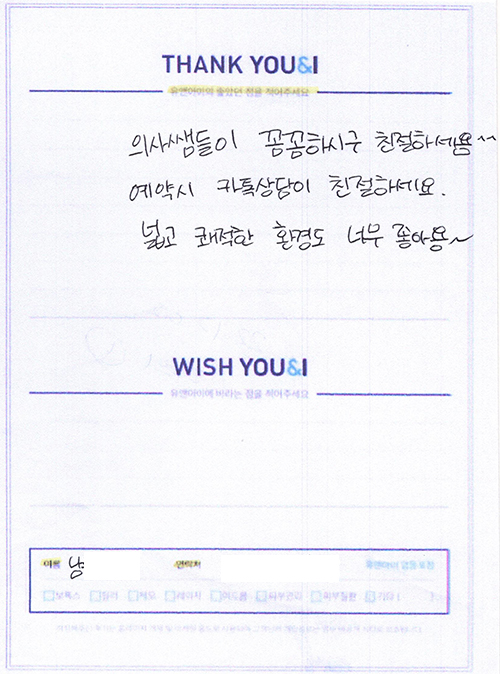 THANK YOU&I
유앤아이의 좋았던 점을 적어주세요
의사쌤들이 꼼꼼하시구 친절하세용~~
예약시 카톡상담이 친절하세요.
넓고 쾌적한 환경도 너무 좋아용~
WISH YOU&I
유앤아이에 바라는 점을 적어주세요
이름 남 연락처
보톡스 필러 제모 레이저 여드름 피부관리 피부질환 기타 ( )